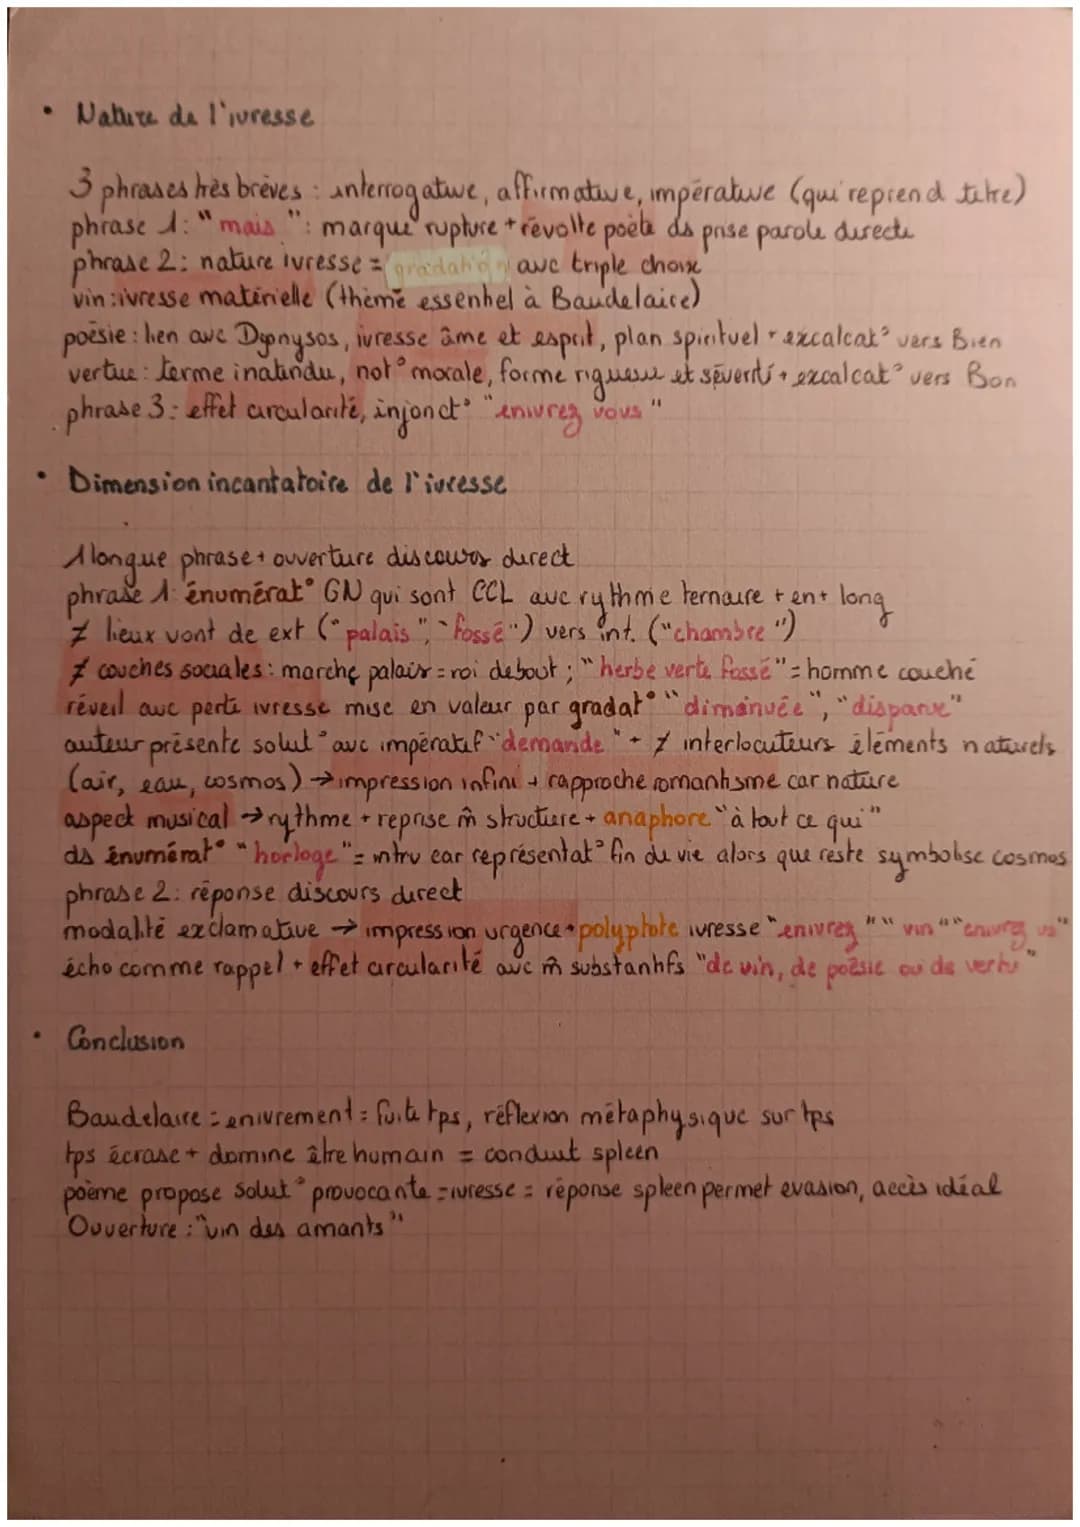 • Nature de l'ivresse
3 phrases très brèves : interrogative, affirmative, impérative (qui reprend titre)
phrase 1: "mais": marque rupture + révolte poète ds prise parole directe
phrase 2: nature ivresse = gradation avc triple choix
vin : ivresse matérielle (thème essentiel à Baudelaire)
poésie : lien avc Dyonysos, ivresse âme et esprit, plan spirituel + excalcat° vers Bien
vertue : terme inatindu, not° morale, forme rigueur et sévérité + excalcat° vers Bon
phrase 3 : effet circularité, injonct° "enivrez vous"
• Dimension incantatoire de l'ivresse
1 longue phrase + ouverture discours direct
phrase 1: énumérat° GN qui sont CCL avc rythme ternaire + en + long
≠ lieux vont de ext ("palais", "fossé") vers int. ("chambre")
≠ couches sociales : marche palais = roi debout ; "herbe verte fossé" = homme couché
réveil avc perte ivresse mise en valeur par gradat° "diminuée", "disparue"
auteur présente solut° avc impératif "demande" + ≠ interlocuteurs éléments naturels
(air, eau, cosmos) → impression infini + rapproche romantisme car nature
aspect musical → rythme + reprise m̂ structure + anaphore "à tout ce qui"
ds énumérat° "horloge" = intru car représentat° fin de vie alors que reste symbolise cosmos
phrase 2: réponse discours direct
modalité exclamative → impression urgence + polyptote ivresse "enivrez" "vin" "enivrez vs"
écho comme rappel + effet circularité avc m̂ substantifs "de vin, de poésie ou de vertu"
• Conclusion
Baudelaire = enivrement = fuite tps, réflexion métaphysique sur tps
tps écrase + domine être humain = conduit spleen
poème propose solut° provocante = ivresse = réponse spleen permet evasion, accès idéal
Ouverture : "vin des amants"